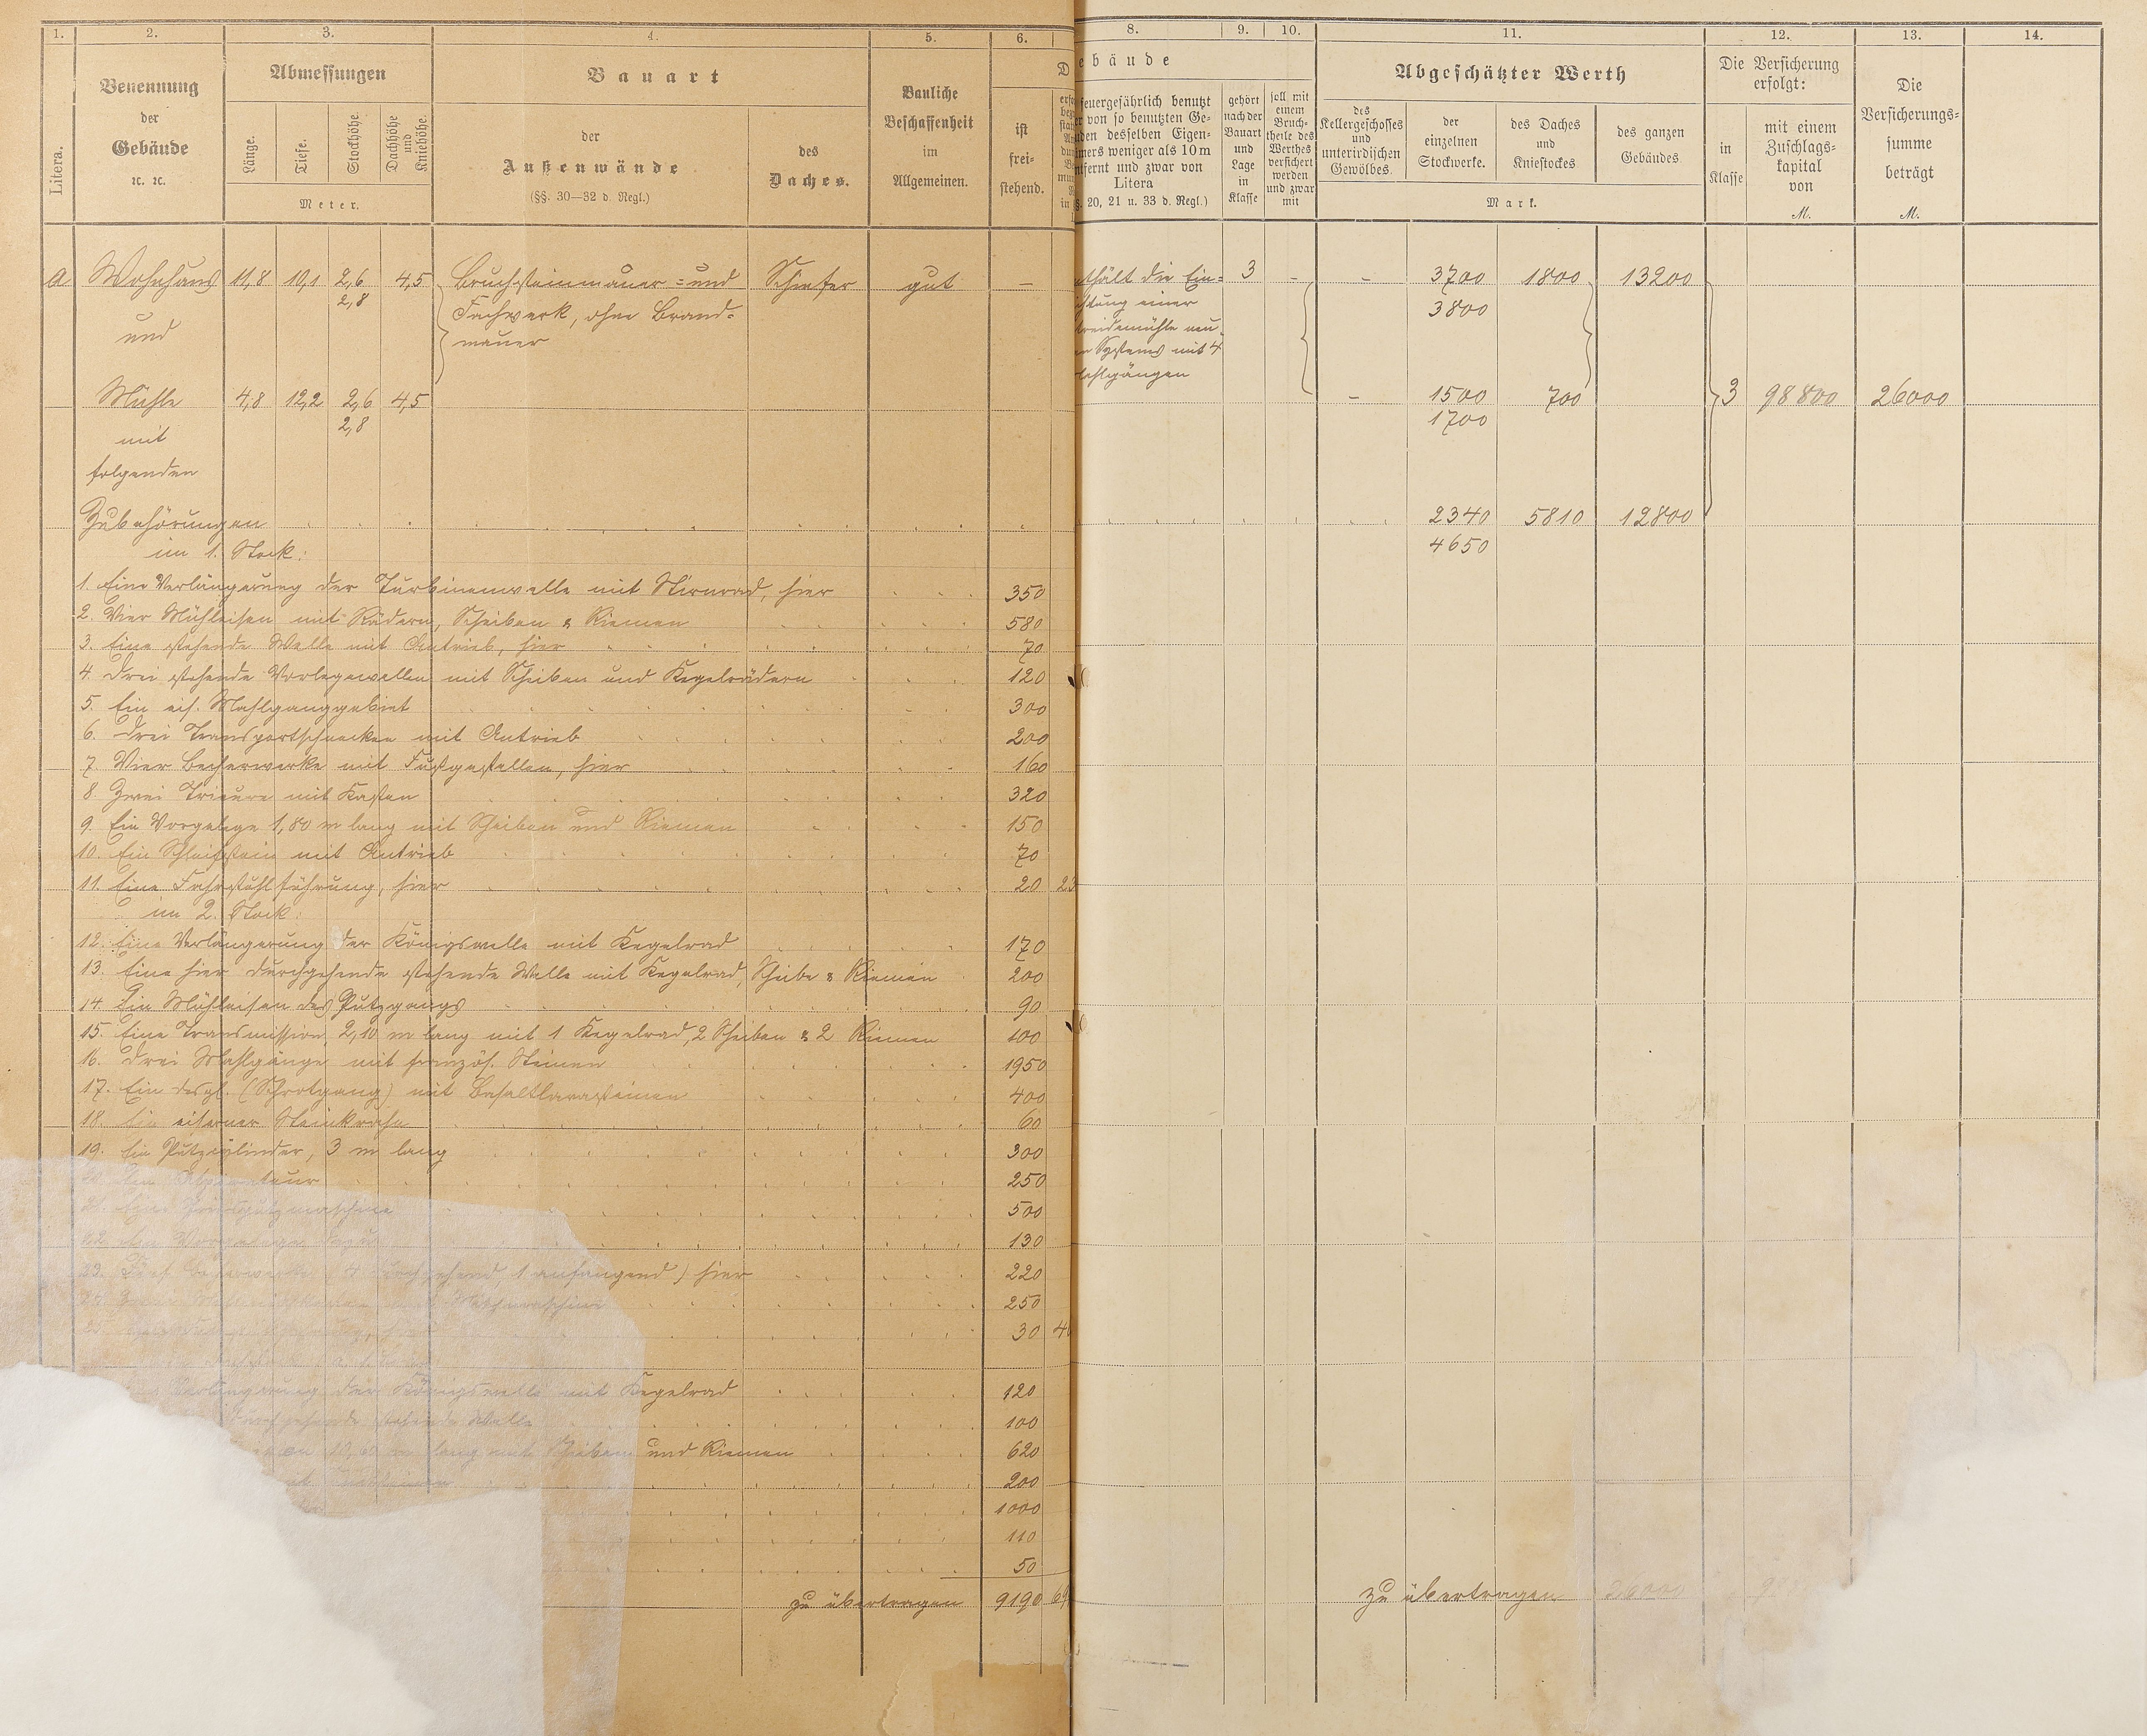 1. 2. 3. 4. 5. 6. 8. 9. 10. 11. 12. 13. 14.
Litera.
Benennung
der
Gebäude
ꝛc. ꝛc.
Abmessungen
Länge.
Tiefe.
Stockhöhe.
Dachhöhe und Kniehöhe.
Meter.
Bauart
der
Außenwände
(§§. 30—32 d. Regl.)
des
Daches.
Bauliche
Beschaffenheit
im
Allgemeinen.
ist
frei-
stehend.
ebäude
feuergefährlich benutzt
er von so benutzten Ge-
uden desselben Eigen-
ümers weniger als 10 m
ntfernt und zwar von
Litera
§. 20, 21 u. 33 d. Regl.)
gehört
nach der
Bauart
und
Lage
in
Klasse
soll mit
einem
Bruch-
theile des
Werthes
versichert
werden
und zwar
mit
Abgeschätzter Werth
des
Kellergeschosses
und
unterirdischen
Gewölbes.
der
einzelnen
Stockwerke.
des Daches
und
Kniestockes
des ganzen
Gebäudes.
Mark.
Die Versicherung
erfolgt:
in
Klasse
mit einem
Zuschlags-
kapital
von
M.
Die
Versicherungs-
summe
beträgt
M.
a Wohnhaus 11,8 10,1 2,6 4,5 Bruchsteinmauer- und Schiefer gut — nthält die Ein- 3 – – 3700 1800 13200
2,8 Fachwerk, ohne Brand- chtung einer 3800
und mauer treidemühle neu-
en Systems mit 4
Mahlgängen
Mühle 4,8 12,2 2,6 4,5 – 1500 700 3 98800 26000
2,8 1700
mit
folgenden
Zubehörungen 2340 5810 12800
im 1. Stock: 4650
1. Eine Verlängerung der Turbinenwelle mit Stirnrad, hier 350
2. Vier Mühleisen mit Rädern, Scheiben & Riemen 580
3. Eine stehende Welle mit Antrieb, hier 70
4. Drei stehende Vorlegewellen mit Scheiben und Kegelrädern 120
5. Ein eis. Mahlganggebiet 300
6. Drei Transportschnecken mit Antrieb 200
7. Vier Becherwerke mit Fußgestellen, hier 160
8. Zwei Trieure mit Kasten 320
9. Ein Vorgelege 1,80 m lang mit Scheiben und Riemen 150
10. Ein Schleifstein mit Antrieb 70
11. Eine Fahrstuhlführung, hier 20 23
im 2. Stock:
12. Eine Verlängerung der Königswelle mit Kegelrad 170
13. Eine hier durchgehende stehende Welle mit Kegelrad, Scheibe & Riemen 200
14. Ein Mühleisen des Putzgangs 90
15. Eine Transmission 2,10 m lang mit 1 Kegelrad, 2 Scheiben & 2 Riemen 100
16. Drei Mahlgänge mit französ. Steinen 1950
17. Ein desgl. (Schrotgang) mit Basaltlavasteinen 400
18. Ein eiserner Steinkrahn 60
19. Ein Putzcilinder, 3 m lang 300
20. Ein Aspirateur 250
21. Eine 500
22. Ein Vorgelege 130
23. Fünf Becherwerke (4 durchgehend, 1 anfangend) hier 220
24. Zwei Mischmaschine 250
30 4
Verlängerung der Königswelle mit Kegelrad 120
durchgehende stehende Welle 100
m lang mit Scheiben und Riemen 620
200
1000
110
50
zu übertragen 9190 69
zu übertragen 26000